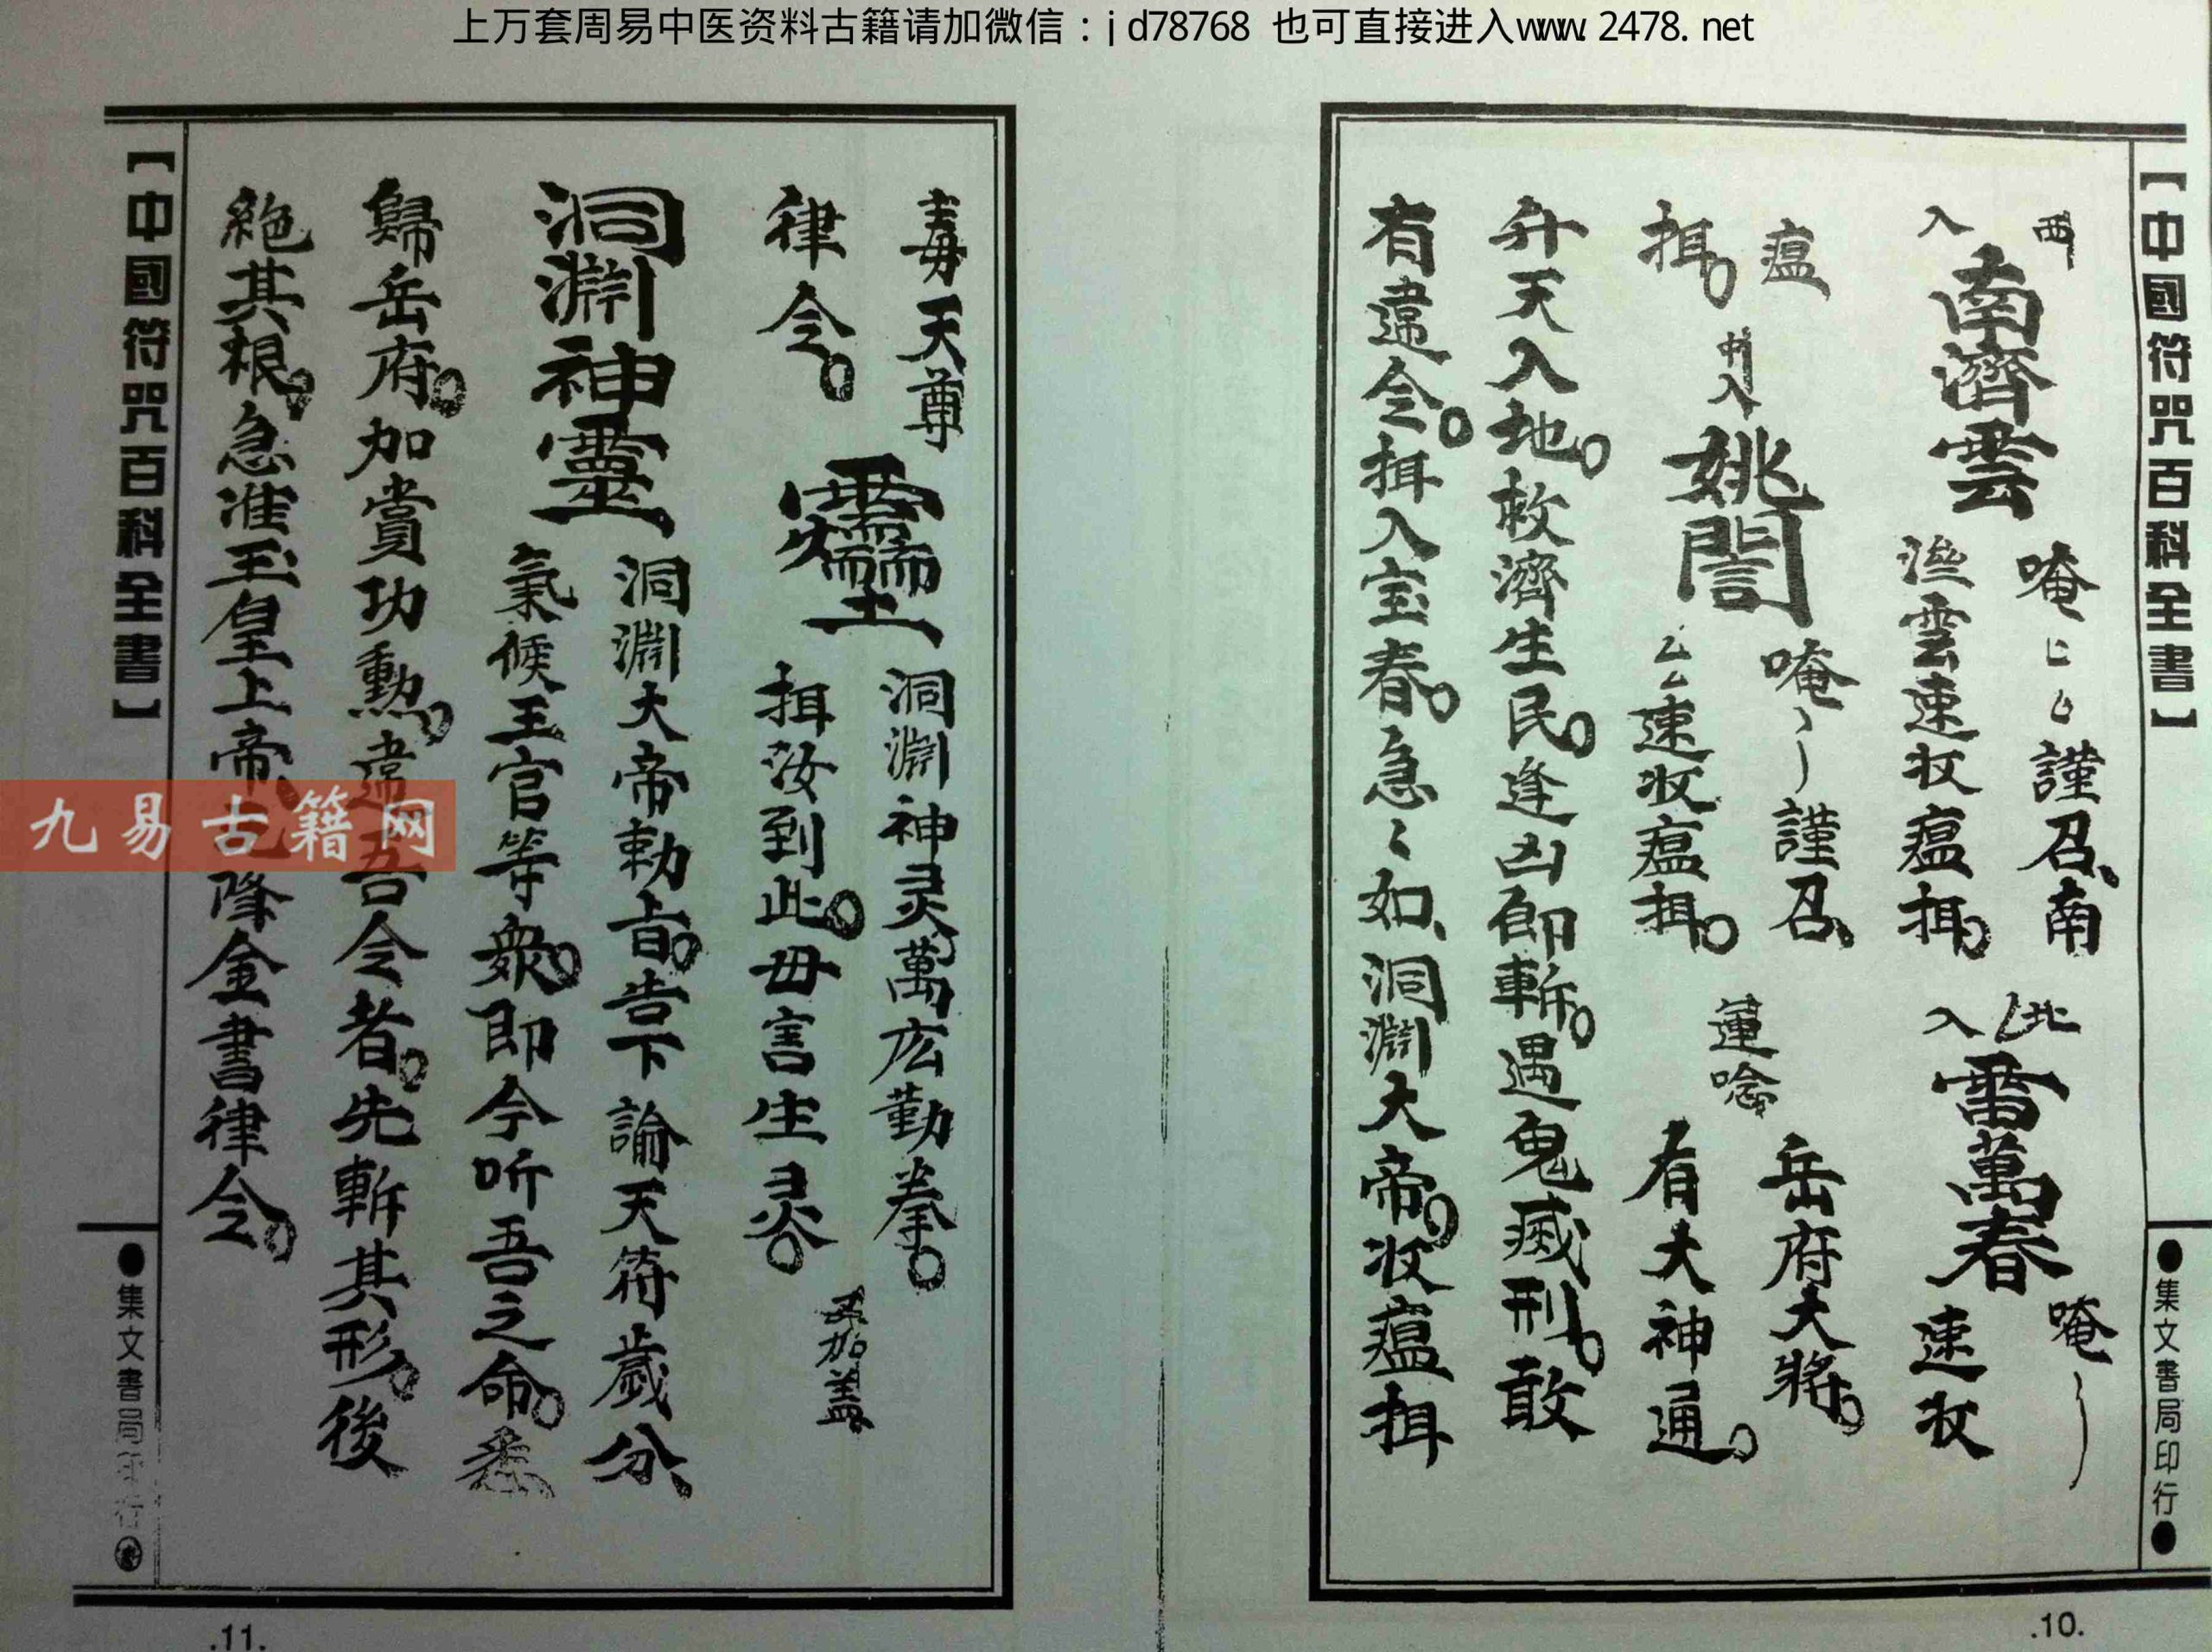 上万套周易中医资料古籍请加微信：jd78768 也可直接进入www.2478.net
【中國符咒百科全書】
●集文書局印行●
西
入
南濟雲
唵
謹召、南
濟雲速收瘟
北
入
雷萬春
唵
速收
瘟
中
入
姚誾
唵
謹召、
速收瘟
蓮唸
岳府大將。
有大神通。
升天入地。救濟生民。逢凶即斬。遇鬼滅刑。敢
有違令。
入宝春。急〻如、洞淵大帝。收瘟
.10.
毒天尊
律令。
洞淵神灵萬広勤拳。
汝到此。毋害生灵。
加蓋
洞淵神靈
洞淵大帝勅旨。告下諭天符歲分
氣候王官等衆。即今听吾之命。悉
歸岳府。加賞功勲。違吾令者。先斬其形。後
絶其根。急准玉皇上帝、降金書律令。
九易古籍网
【中國符咒百科全書】
●集文書局印行
.11.